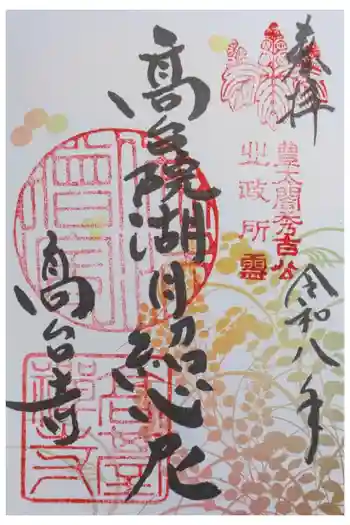 奉拝
豊太閤秀吉公
北政所霊
令和八年
高台院湖月紹心尼
高台寺